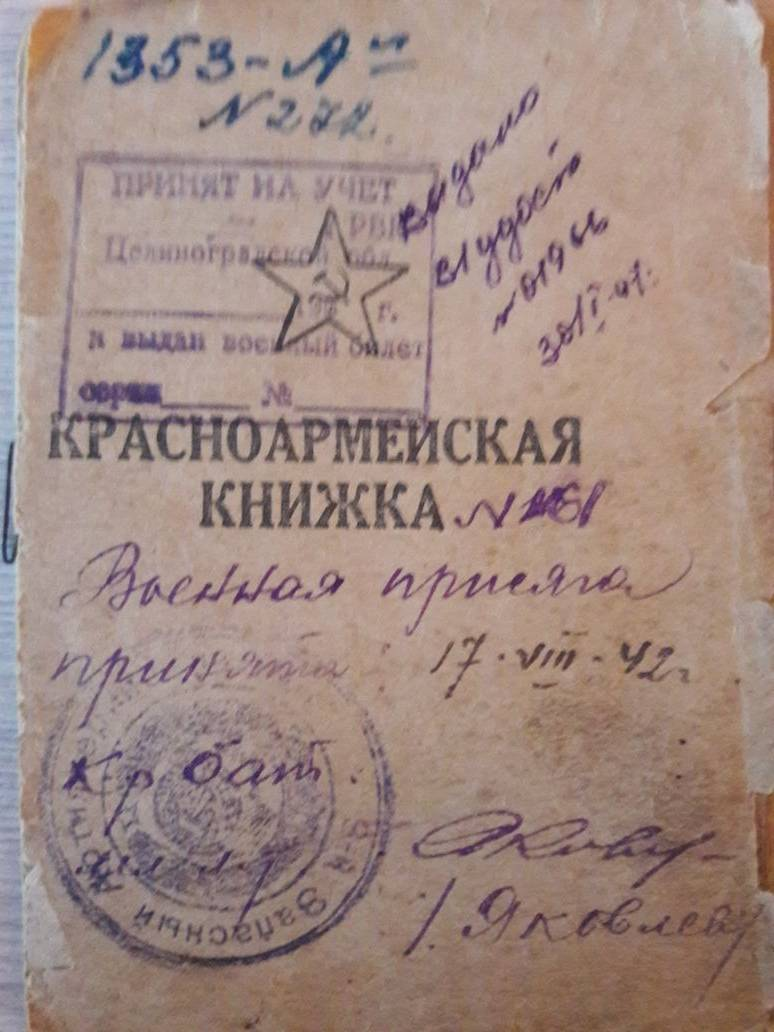 1353-А
N 272.
ПРИНЯТ НА УЧЕТ
РВК
Целиноградской обл.
г.
и выдан военный билет
серия №
Выдано
30/I-47.
КРАСНОАРМЕЙСКАЯ
КНИЖКА N
Военная присяга
принята 17·VIII·42г
Кр бат.
Запасный Арти
/Яковлев/